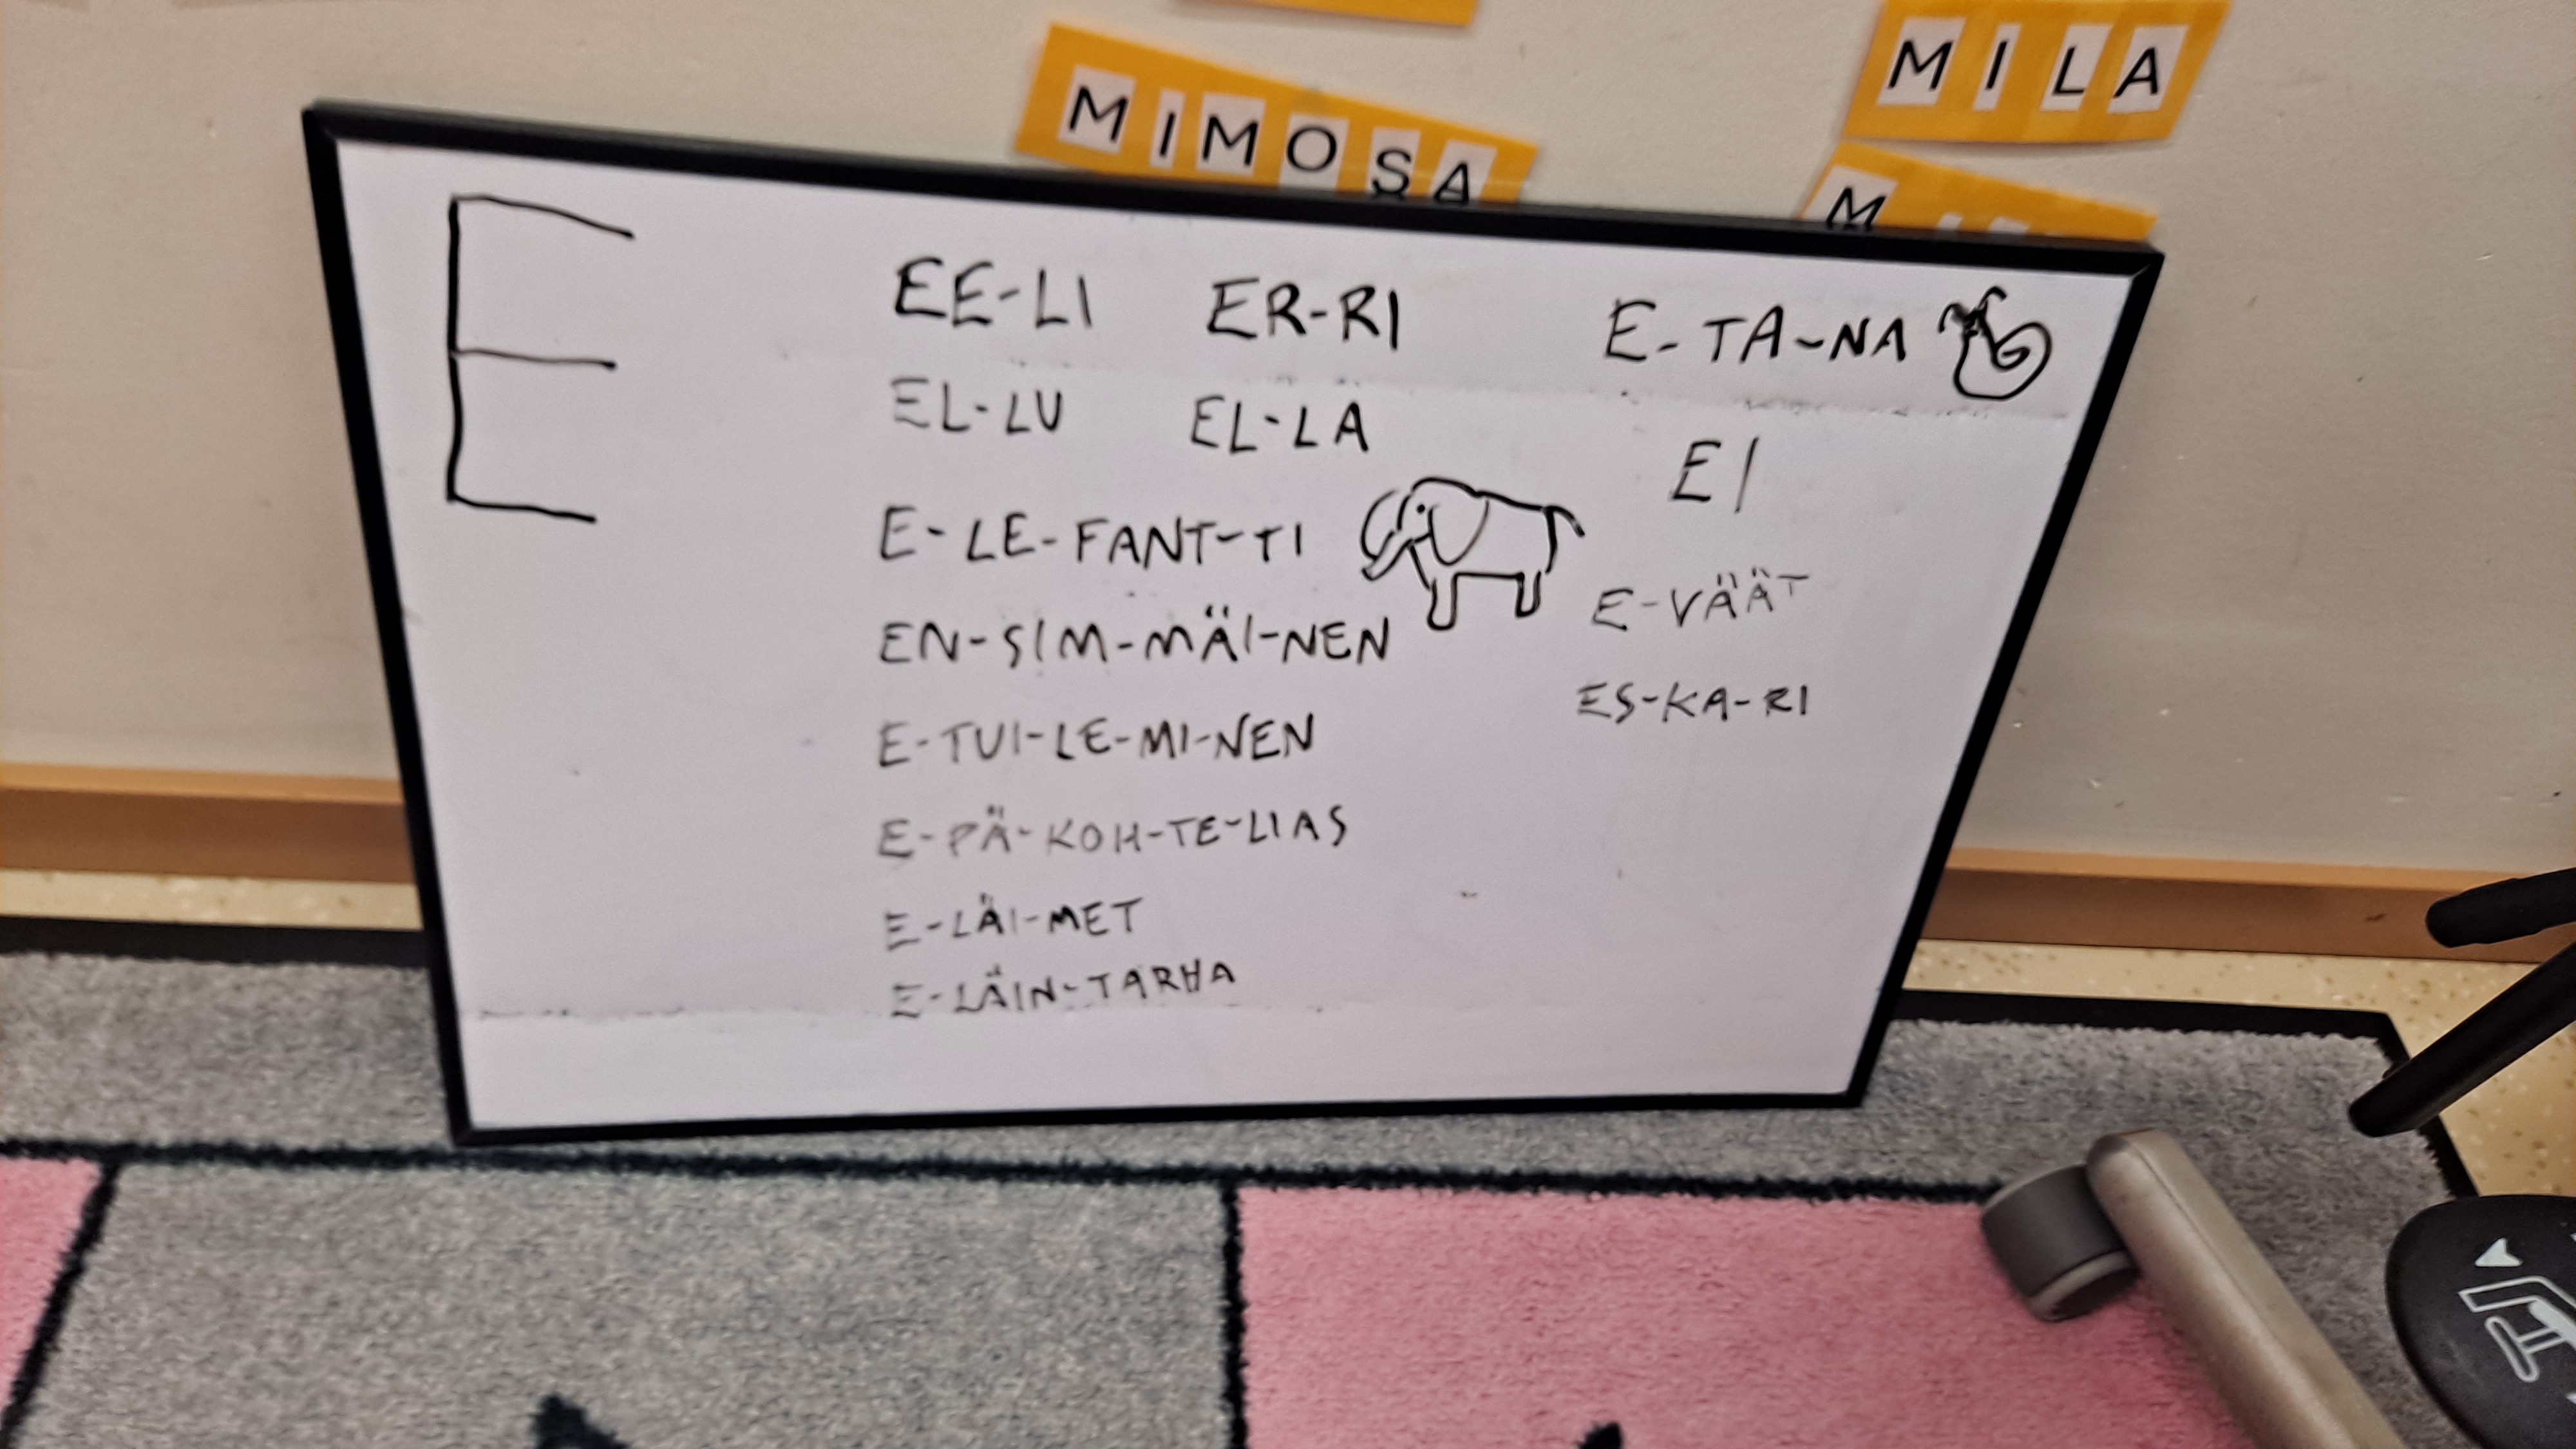 MIMOSA
MILA
M
E
EE-LI ER-RI
EL-LU EL-LA
E-LE-FANT-TI
EN-SIM-MÄI-NEN
E-TUI-LE-MI-NEN
E-PÄ-KOH-TE-LIAS
E-LÄI-MET
E-LÄIN-TARHA
E-TA-NA
EI
E-VÄÄT
ES-KA-RI